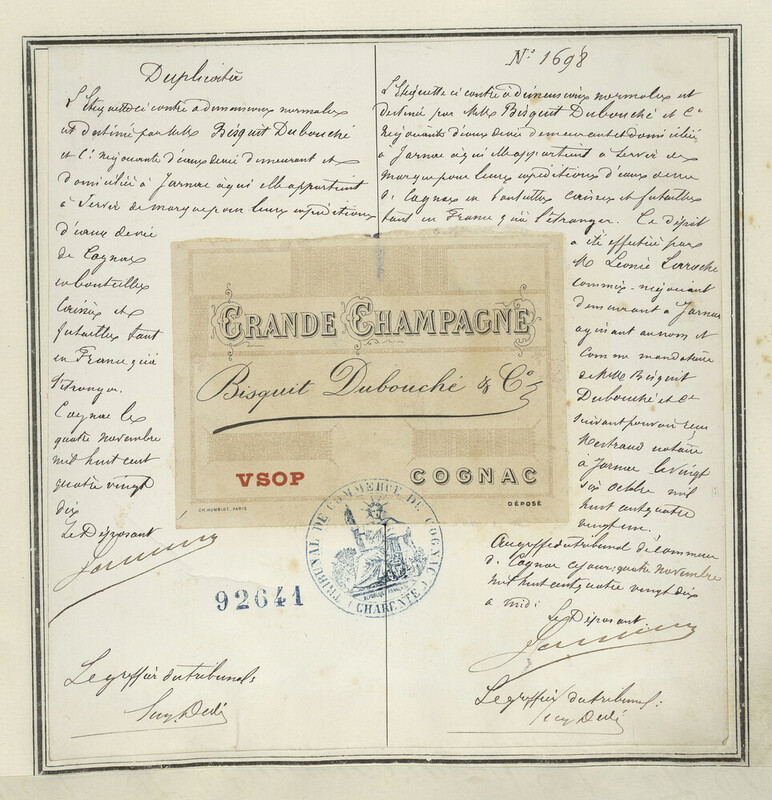 Duplicata
L'Etiquette ci contre à dimensions normales
est destinée par MM. Bisquit Dubouché
et Cie négociants d'eaux de vie demeurant et
domiciliés à Jarnac à qui elle appartient
à servir de marque pour leurs expéditions
d'eaux de vie
de Cognac
en bouteilles
caisses et
futailles tant
en France qu'à
l'étranger.
Cognac le
quatre novembre
mil huit cent
quatre vingt
dix
Le Déposant
Le greffier du tribunal:
No 1698
L'Etiquette ci contre à dimensions normales est
destinée par MM. Bisquit Dubouché et Cie
négociants d'eaux de vie demeurant et domiciliés
à Jarnac à qui elle appartient à servir de
marque pour leurs expéditions d'eaux de vie
de Cognac en bouteilles caisses et futailles
tant en France qu'à l'étranger. Ce dépôt
a été effectué par
M. Léonie Larroche
commis-négociant
demeurant à Jarnac
agissant au nom et
comme mandataire
de MM. Bisquit
Dubouché et Cie
suivant pouvoir reçu
notaire
à Jarnac le vingt
six octobre mil
huit cent quatre
vingt
Au greffe du tribunal de commerce
de Cognac ce jour: quatre novembre
mil huit cent quatre vingt dix
à midi
Le Déposant.
Le greffier du tribunal:
GRANDE CHAMPAGNE
Bisquit Dubouché & Co
VSOP COGNAC
CH. HUMBLOT, PARIS DÉPOSÉ
TRIBUNAL DE COMMERCE DE COGNAC
(CHARENTE)
92641